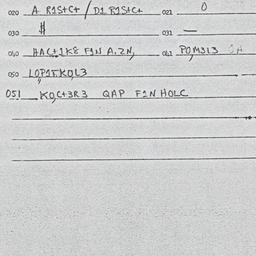 020 A. R1S+C+ / D1. R1S+C+ 021 0
030 # 031 —
040 HAC+1K8 F1N A.ZN, 041 POM313
050 LOP1TKOL3
051 KO,C+3R3 QAP F1N HOLC